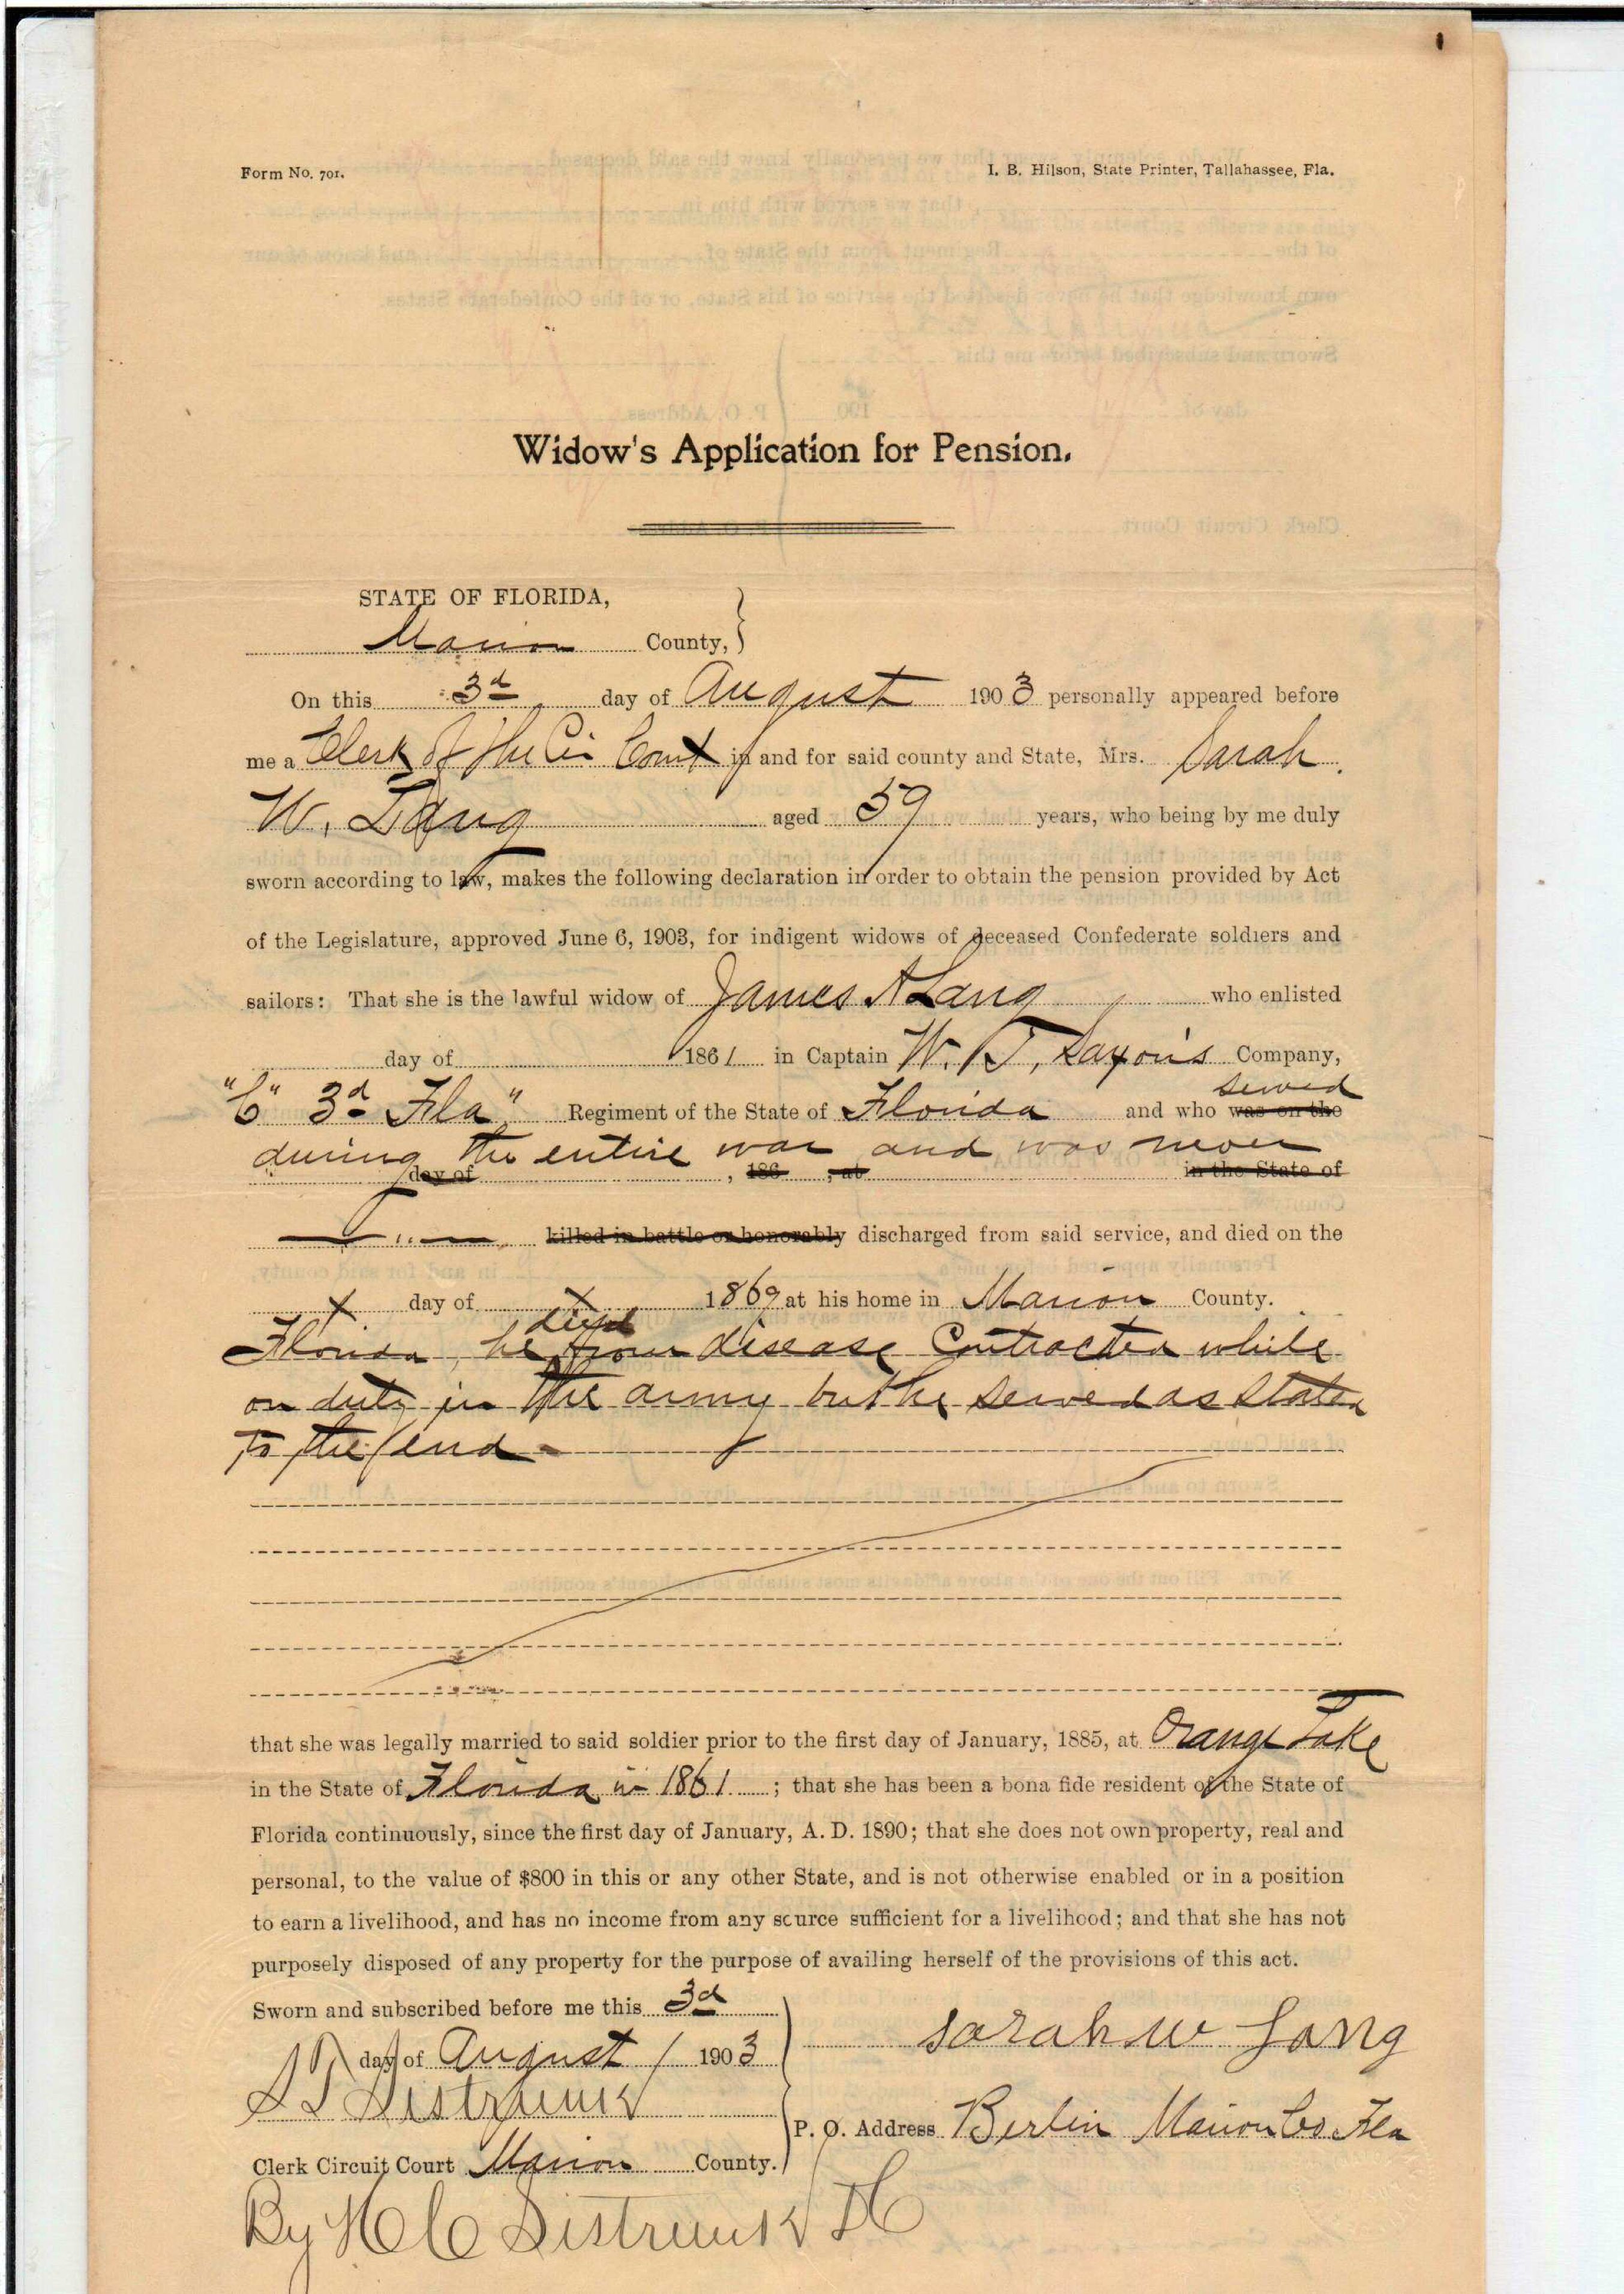 Form No. 701.
I. B. Hilson, State Printer, Tallahassee, Fla.
Widow's Application for Pension.
STATE OF FLORIDA,
Marion County,
On this 3d day of August 1903 personally appeared before
me a Clerk of the Cir Court in and for said county and State, Mrs. Sarah
W. Lang aged 59 years, who being by me duly
sworn according to law, makes the following declaration in order to obtain the pension provided by Act
of the Legislature, approved June 6, 1903, for indigent widows of deceased Confederate soldiers and
sailors: That she is the lawful widow of James A Lang who enlisted
day of 1861 in Captain W. Saxon's Company,
served
"C" 3d Fla" Regiment of the State of Florida and who was on the
during the entire war and was never
day of , 186 , at in the State of
killed in battle or honorably discharged from said service, and died on the
x day of x 1869 at his home in Marion County.
died
Florida, he from disease Contracted while
on duty in the army but he served as stated
to the end
that she was legally married to said soldier prior to the first day of January, 1885, at Orange Lake
in the State of Florida in 1861 ; that she has been a bona fide resident of the State of
Florida continuously, since the first day of January, A. D. 1890; that she does not own property, real and
personal, to the value of $800 in this or any other State, and is not otherwise enabled or in a position
to earn a livelihood, and has no income from any source sufficient for a livelihood; and that she has not
purposely disposed of any property for the purpose of availing herself of the provisions of this act.
Sworn and subscribed before me this 3d
day of August 1903
sarah w Lang
S T Sistrunk
P. O. Address Berlin Marion Co Fla
Clerk Circuit Court Marion County.
By H C Sistrunk DC